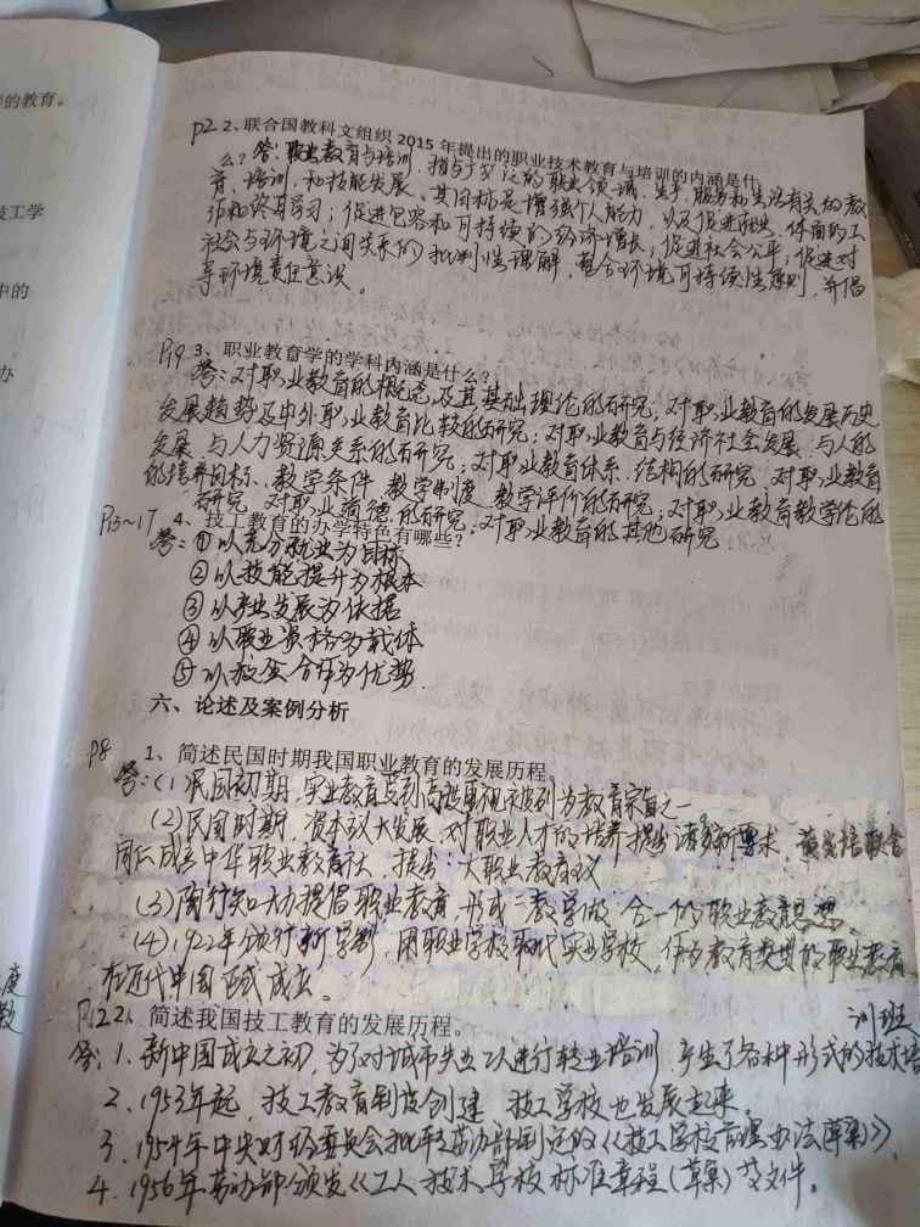 的教育。
技工学
中的
办
度
教
P2 2、联合国教科文组织2015年提出的职业技术教育与培训的内涵是什
么？答：职业教育与培训，指与广泛的职业领域、生产、服务和生活有关的教
育、培训，和技能发展。其目标是增强个人能力，以及促进就业、体面的工
作和终身学习；促进包容和可持续的经济增长；促进社会公平；促进对
社会与环境之间关系的批判性理解，整合环境可持续性原则，并倡
导环境责任意识。
P19 3、职业教育学的学科内涵是什么？
答：对职业教育的概念及其基础理论的研究；对职业教育的发展历史
发展趋势及中外职业教育比较的研究；对职业教育与经济社会发展、与人的
发展、与人力资源关系的研究；对职业教育体系、结构的研究，对职业教育
的培养目标、教学条件、教学制度、教学评价的研究；对职业教育教学论的
研究，对职业道德的研究；对职业教育的其他研究
P15~17 4、技工教育的办学特色有哪些？
答：①以充分就业为目标
②以技能提升为根本
③以产业发展为依据
④以职业资格为载体
⑤以校企合作为优势.
六、论述及案例分析
P8 1、简述民国时期我国职业教育的发展历程。
答：(1)民国初期，实业教育受到高度重视，被列为教育宗旨之一
(2)民国时期，资本议大发展，对职业人才的培养提出诸多新要求，黄炎培联合
同仁成立中华职业教育社，提出：大职业教育议
(3)陶行知大力提倡职业教育，形成"教学做"合一的职业教育思想。
(4)1922年颁行新学制，用职业学校取代实业学校，作为教育类型的职业教育
在近代中国正式成立。
P12 2、简述我国技工教育的发展历程。
训班
答：1.新中国成立之初，为了对城市失业工人进行转业培训，产生了各种形式的技术培
2.1953年起，技工教育制度创建，技工学校也发展起来。
3.1954年中央财经委员会批转劳动部制定的《技工学校管理办法(草案)》
4.1956年劳动部颁发《工人技术学校标准章程(草案)及文件。